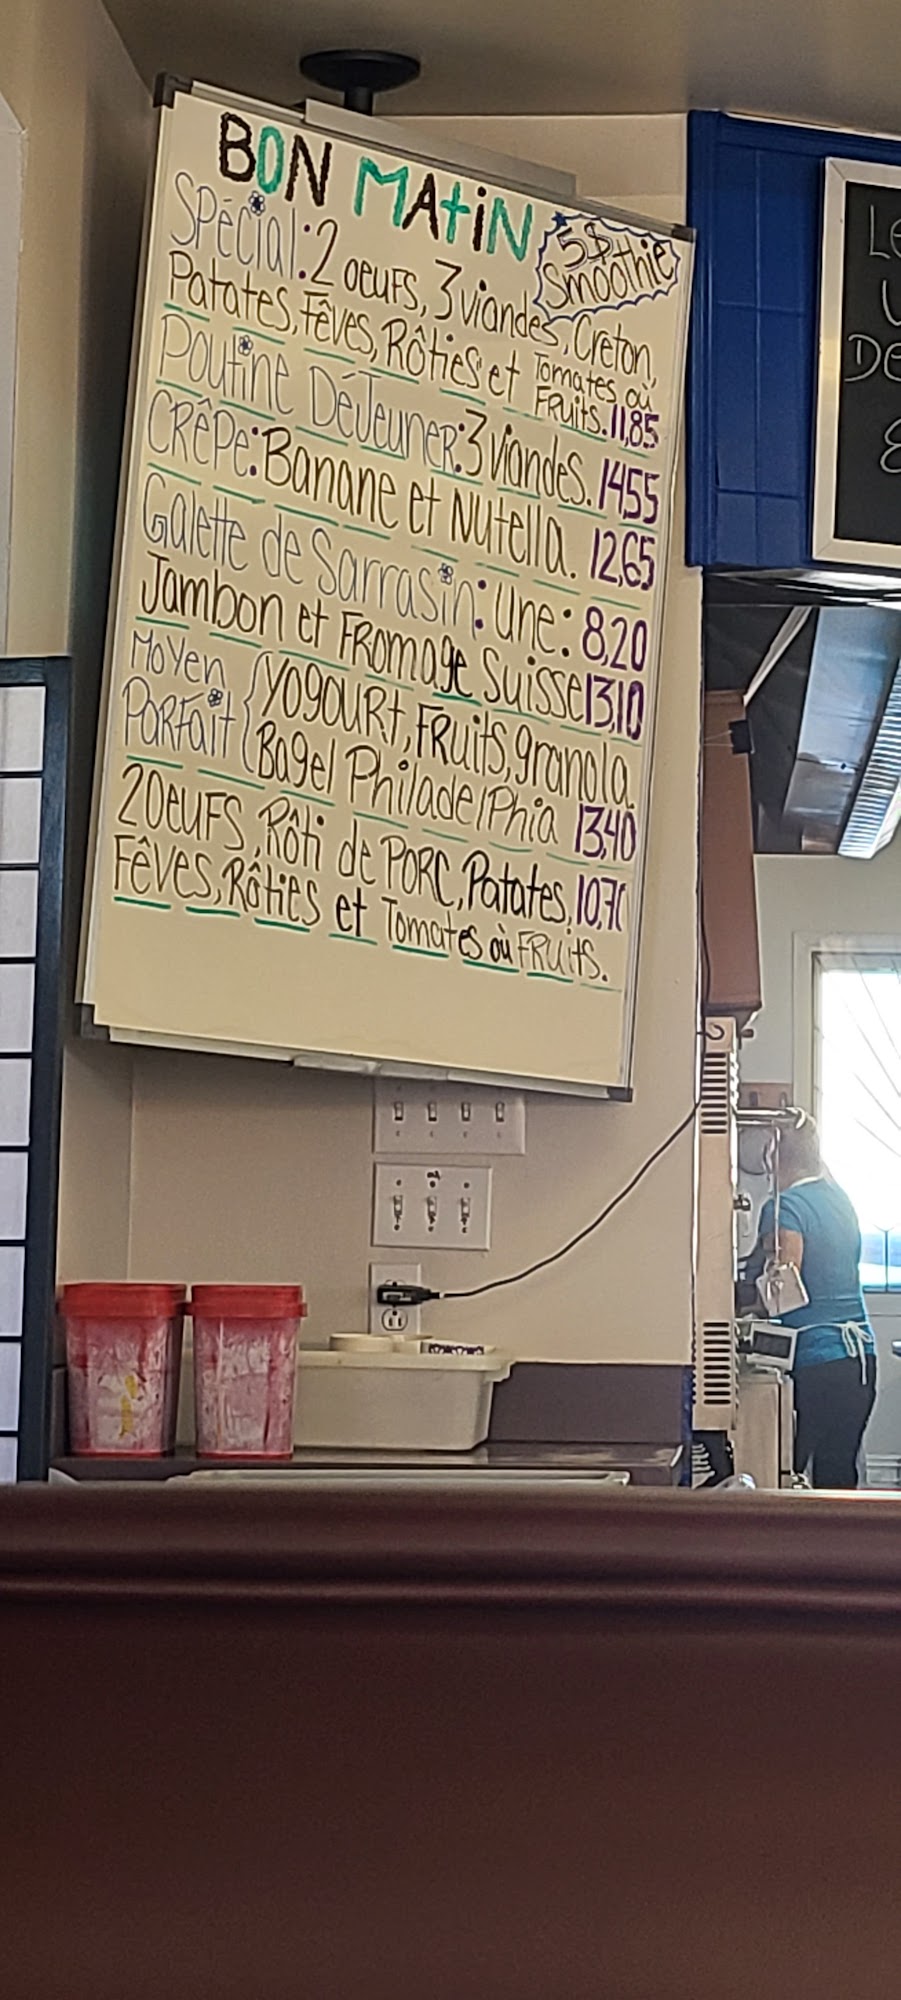 BON MAtiN
5$
Smoothie
Spécial: 2 oeufs, 3 viandes, Creton,
Patates, Fêves, Rôties et Tomates où
Fruits. 11,85
Poutine DéJeuner: 3 viandes. 14,55
CRêpe: Banane et Nutella. 12,65
Galette de Sarrasin: une: 8,20
Jambon et FRomage Suisse 13,10
Moyen
PaRFait
{Yogourt, FRuits, granola
Bagel PhiladelPhia 13,40
2 oeuFs, Rôti de PORC, Patates, 10,70
Fêves, Rôties et Tomates où FRuits.
Le
De